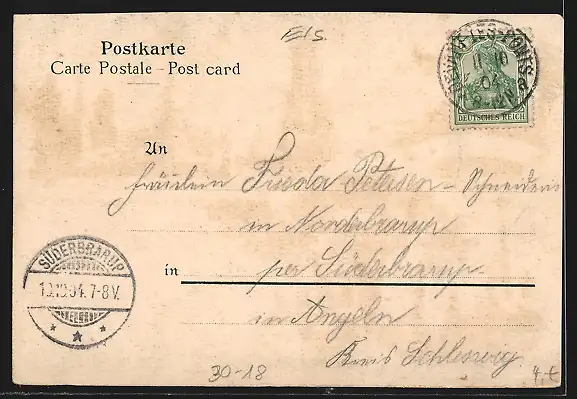 Els.
Postkarte
Carte Postale - Post card
11 10
04
8-12V
DEUTSCHES REICH
An
Fräulein Frieda Petersen - Schneiderin
in Norderbrarup
SÜDERBRARUP
12.10.04. 7-8V.
in
per Süderbrarup
in Angeln
Kreis Schleswig
30-18
4,-